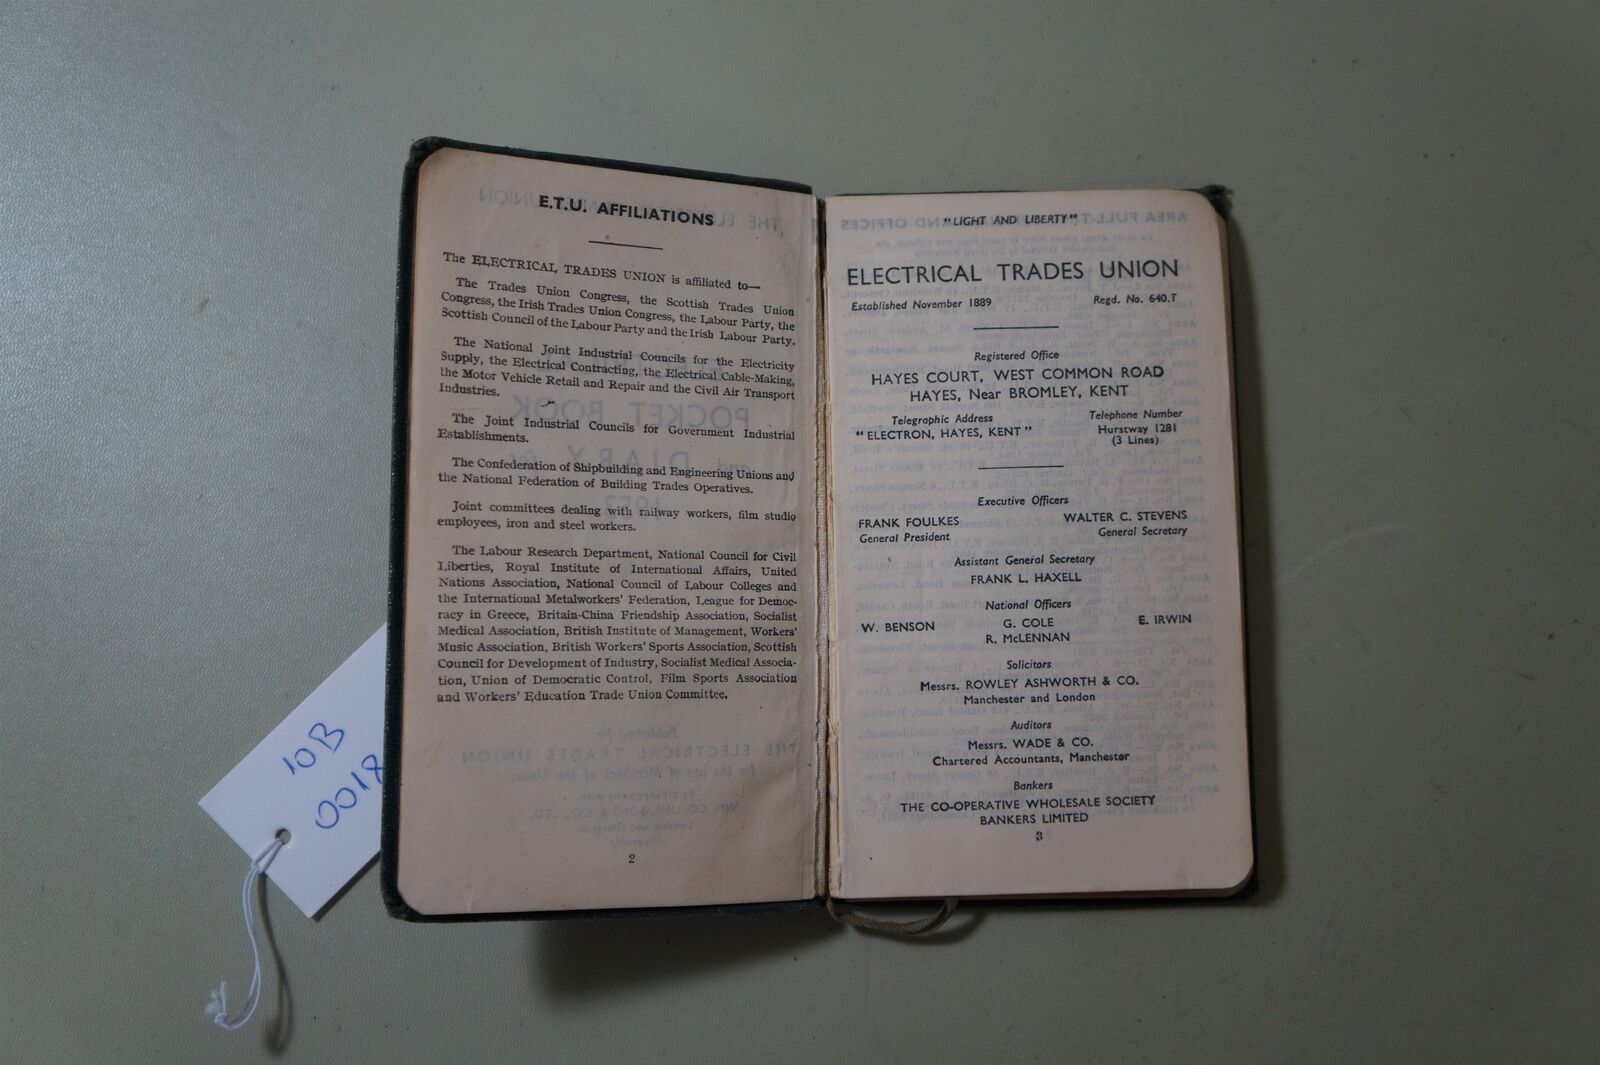 E.T.U. AFFILIATIONS
The ELECTRICAL TRADES UNION is affiliated to—
The Trades Union Congress, the Scottish Trades Union
Congress, the Irish Trades Union Congress, the Labour Party, the
Scottish Council of the Labour Party and the Irish Labour Party.
The National Joint Industrial Councils for the Electricity
Supply, the Electrical Contracting, the Electrical Cable-Making,
the Motor Vehicle Retail and Repair and the Civil Air Transport
Industries.
The Joint Industrial Councils for Government Industrial
Establishments.
The Confederation of Shipbuilding and Engineering Unions and
the National Federation of Building Trades Operatives.
Joint committees dealing with railway workers, film studio
employees, iron and steel workers.
The Labour Research Department, National Council for Civil
Liberties, Royal Institute of International Affairs, United
Nations Association, National Council of Labour Colleges and
the International Metalworkers' Federation, League for Democ-
racy in Greece, Britain-China Friendship Association, Socialist
Medical Association, British Institute of Management, Workers'
Music Association, British Workers' Sports Association, Scottish
Council for Development of Industry, Socialist Medical Associa-
tion, Union of Democratic Control, Film Sports Association
and Workers' Education Trade Union Committee.
2
"LIGHT AND LIBERTY"
ELECTRICAL TRADES UNION
Established November 1889 Regd. No. 640.T
Registered Office
HAYES COURT, WEST COMMON ROAD
HAYES, Near BROMLEY, KENT
Telegraphic Address Telephone Number
"ELECTRON, HAYES, KENT" Hurstway 1281
(3 Lines)
Executive Officers
FRANK FOULKES WALTER C. STEVENS
General President General Secretary
Assistant General Secretary
FRANK L. HAXELL
National Officers
W. BENSON G. COLE E. IRWIN
R. McLENNAN
Solicitors
Messrs. ROWLEY ASHWORTH & CO.
Manchester and London
Auditors
Messrs. WADE & CO.
Chartered Accountants, Manchester
Bankers
THE CO-OPERATIVE WHOLESALE SOCIETY
BANKERS LIMITED
3
10B
0018